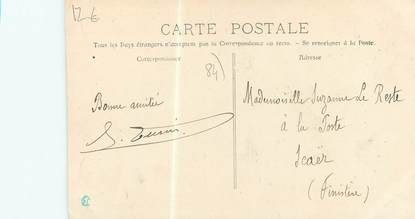 12 €
CARTE POSTALE
Tous les Pays étrangers n'acceptent pas la Correspondance au recto. — Se renseigner à la Poste.
Correspondance
Adresse
84)
Bonne amitié
Mademoiselle Suzanne Le Reste
à la Poste
Scaër
(Finistère)